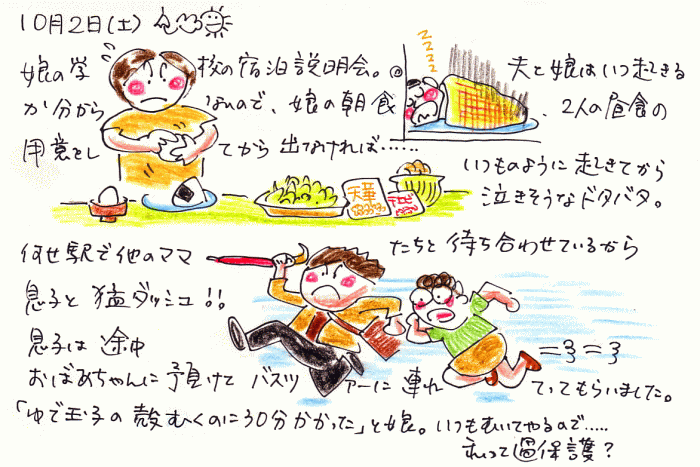 10月2日(土)
娘の学校の宿泊説明会。夫と娘はいつ起きる
か分からないので、娘の朝食、2人の昼食の
用意をしてから出なければ……
zzzzz
いつものように起きてから
泣きそうなドタバタ。
天華
何せ駅で他のママたちと待ち合わせているから
息子と猛ダッシュ!!
息子は途中
おばあちゃんに預けてバスツアーに連れてってもらいました。
「ゆで玉子の殻むくのに30分かかった」と娘。いつもむいてやるので…..
これって過保護?